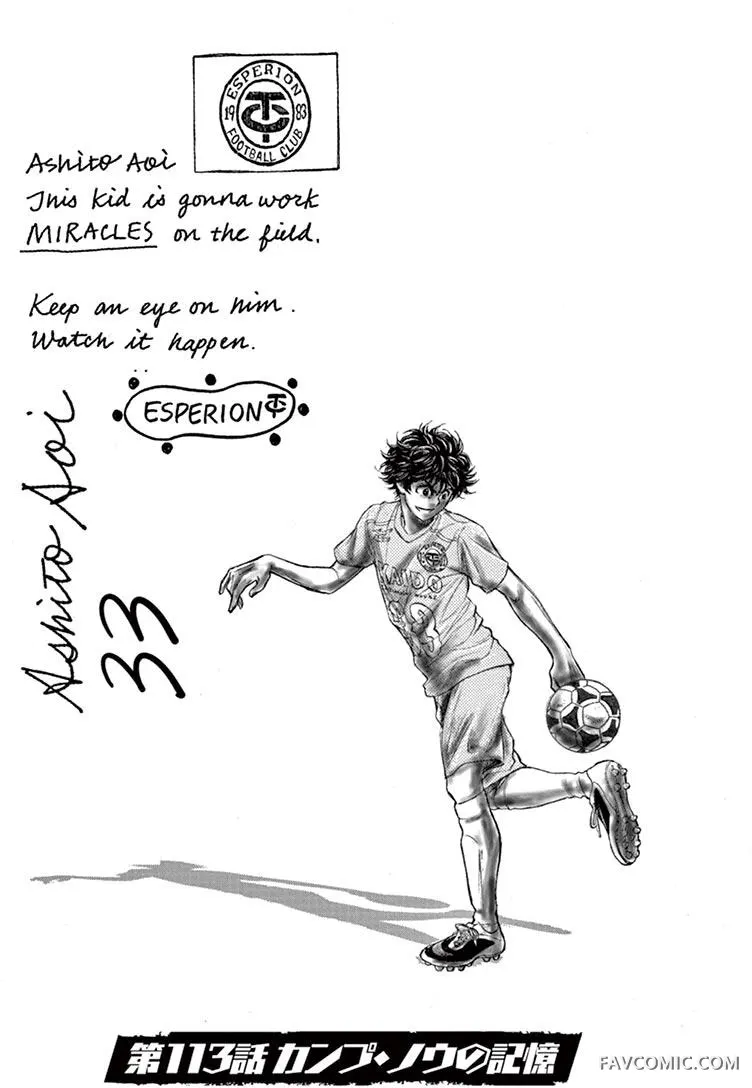 ESPERION
19 83
TC
FOOTBALL CLUB
Ashito Aoi
This kid is gonna work
MIRACLES on the field.
Keep an eye on him.
Watch it happen.
ESPERION TC
Ashito Aoi
33
ESPERION
KAIDO
33
第113話 カンプ・ノウの記憶
FAVCOMIC.COM